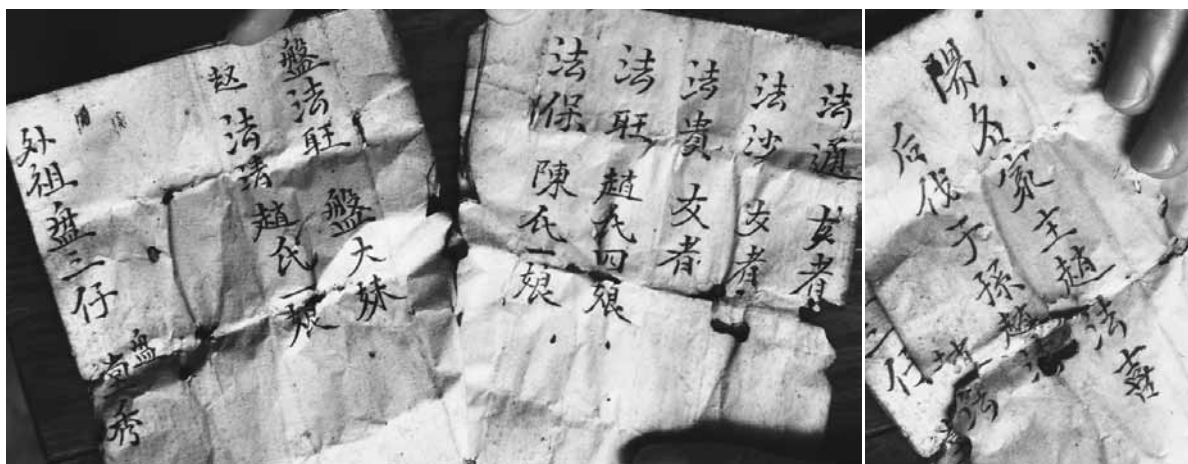 法通 女者
法沙 女者
法貴 女者
法旺 趙氏四娘
法保 陳氏一娘
盤法旺 盤大妹
赵法清 趙氏一娘
外祖盘三仔
盘堂秀
陽名冥主趙法喜
后伐子孫趙法